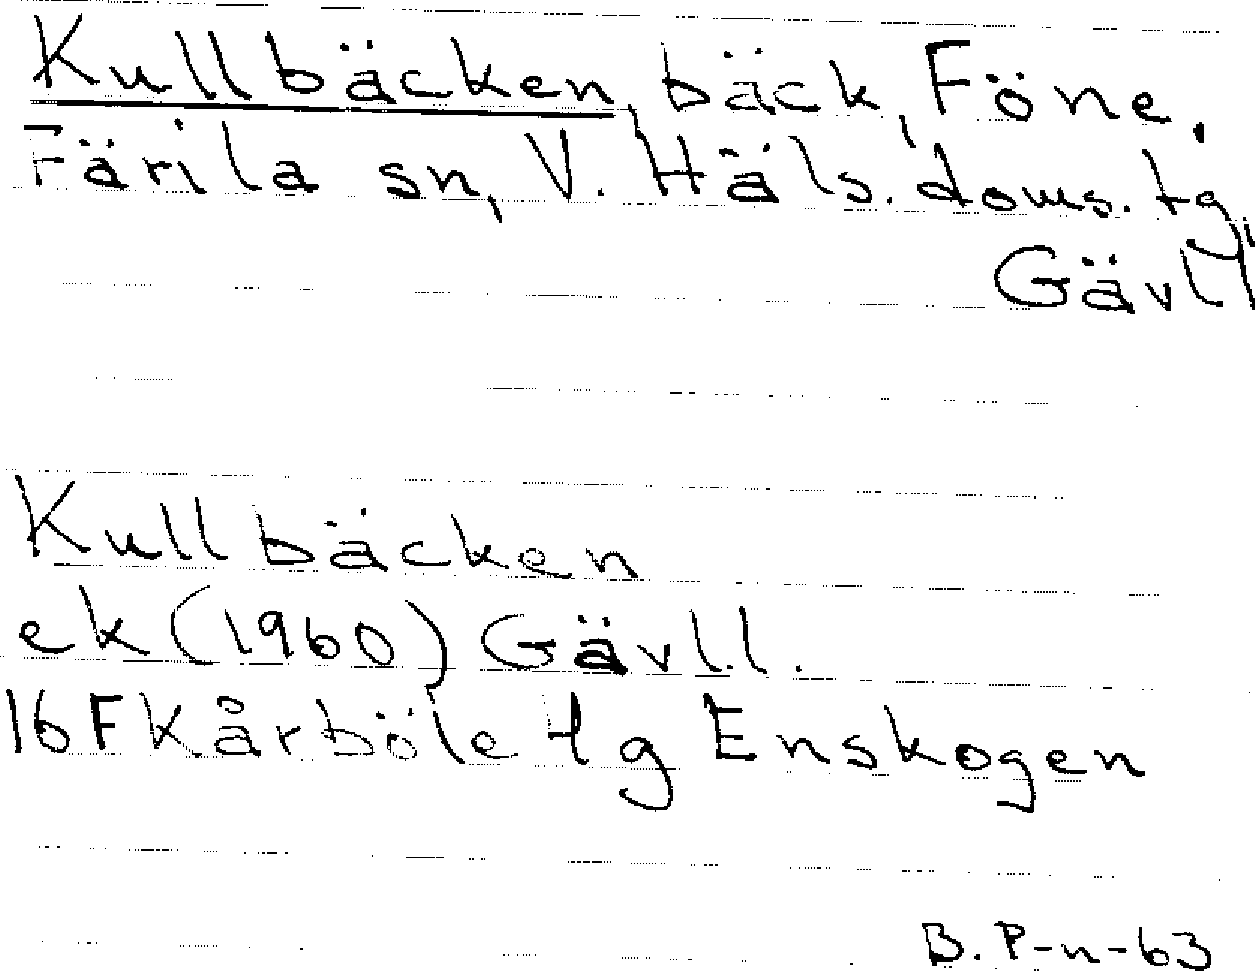 Kullbäcken, bäck, Föne,
Färila sn, V. Häls. doms. tg,
Gävll
Kullbäcken
ek (1960) Gävll.
16F Kårböle 4g Enskogen
B. P-n-63